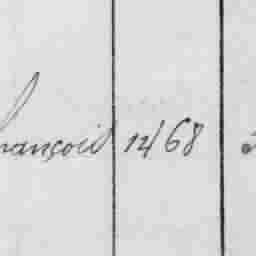 françois 1468